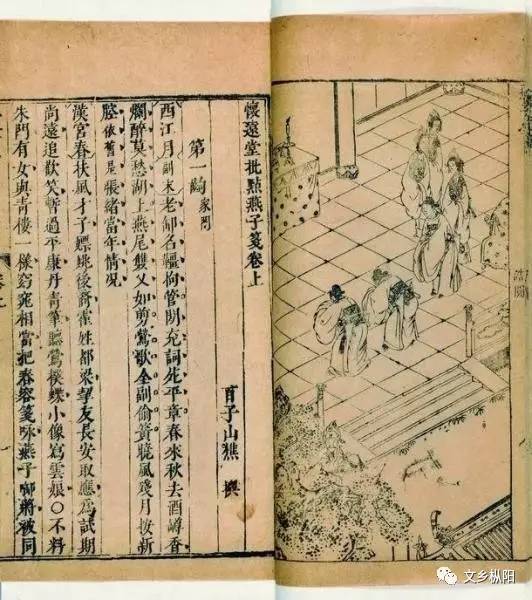 懷遠堂批點燕子箋卷上
百子山樵 撰
第一齣 家門
西江月 副末 老卸名韁拘管閒充詞苑平章春來秋去酒罇香
爛醉莫愁湖上燕尾雙叉如剪鶯歌全副偷簧曉風殘月按新
腔依舊是張緒當年情況
漢宮春扶風才子嫖姚後裔霍姓都梁挈友長安取應為試期
尚遠追歡笑暫過平康丹青筆聽鶯撲蝶小像寫雲娘〇不料
朱門有女與青樓一樣窈窕相當把春容箋咏燕子啣將被同
卷上
文乡枞阳